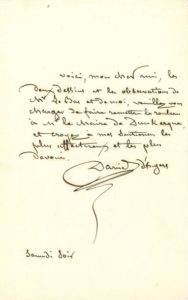 voici, mon cher ami, les
deux dessins et les observation de
Mr Le Bas et de moi, veuillez vous
charger de faire remettre le rouleau
à Mr le Maire de Dunkerque,
et croyez à mes sentimens les
plus affectueux et les plus
dévoués.
David d'Angers
Samedi Soir